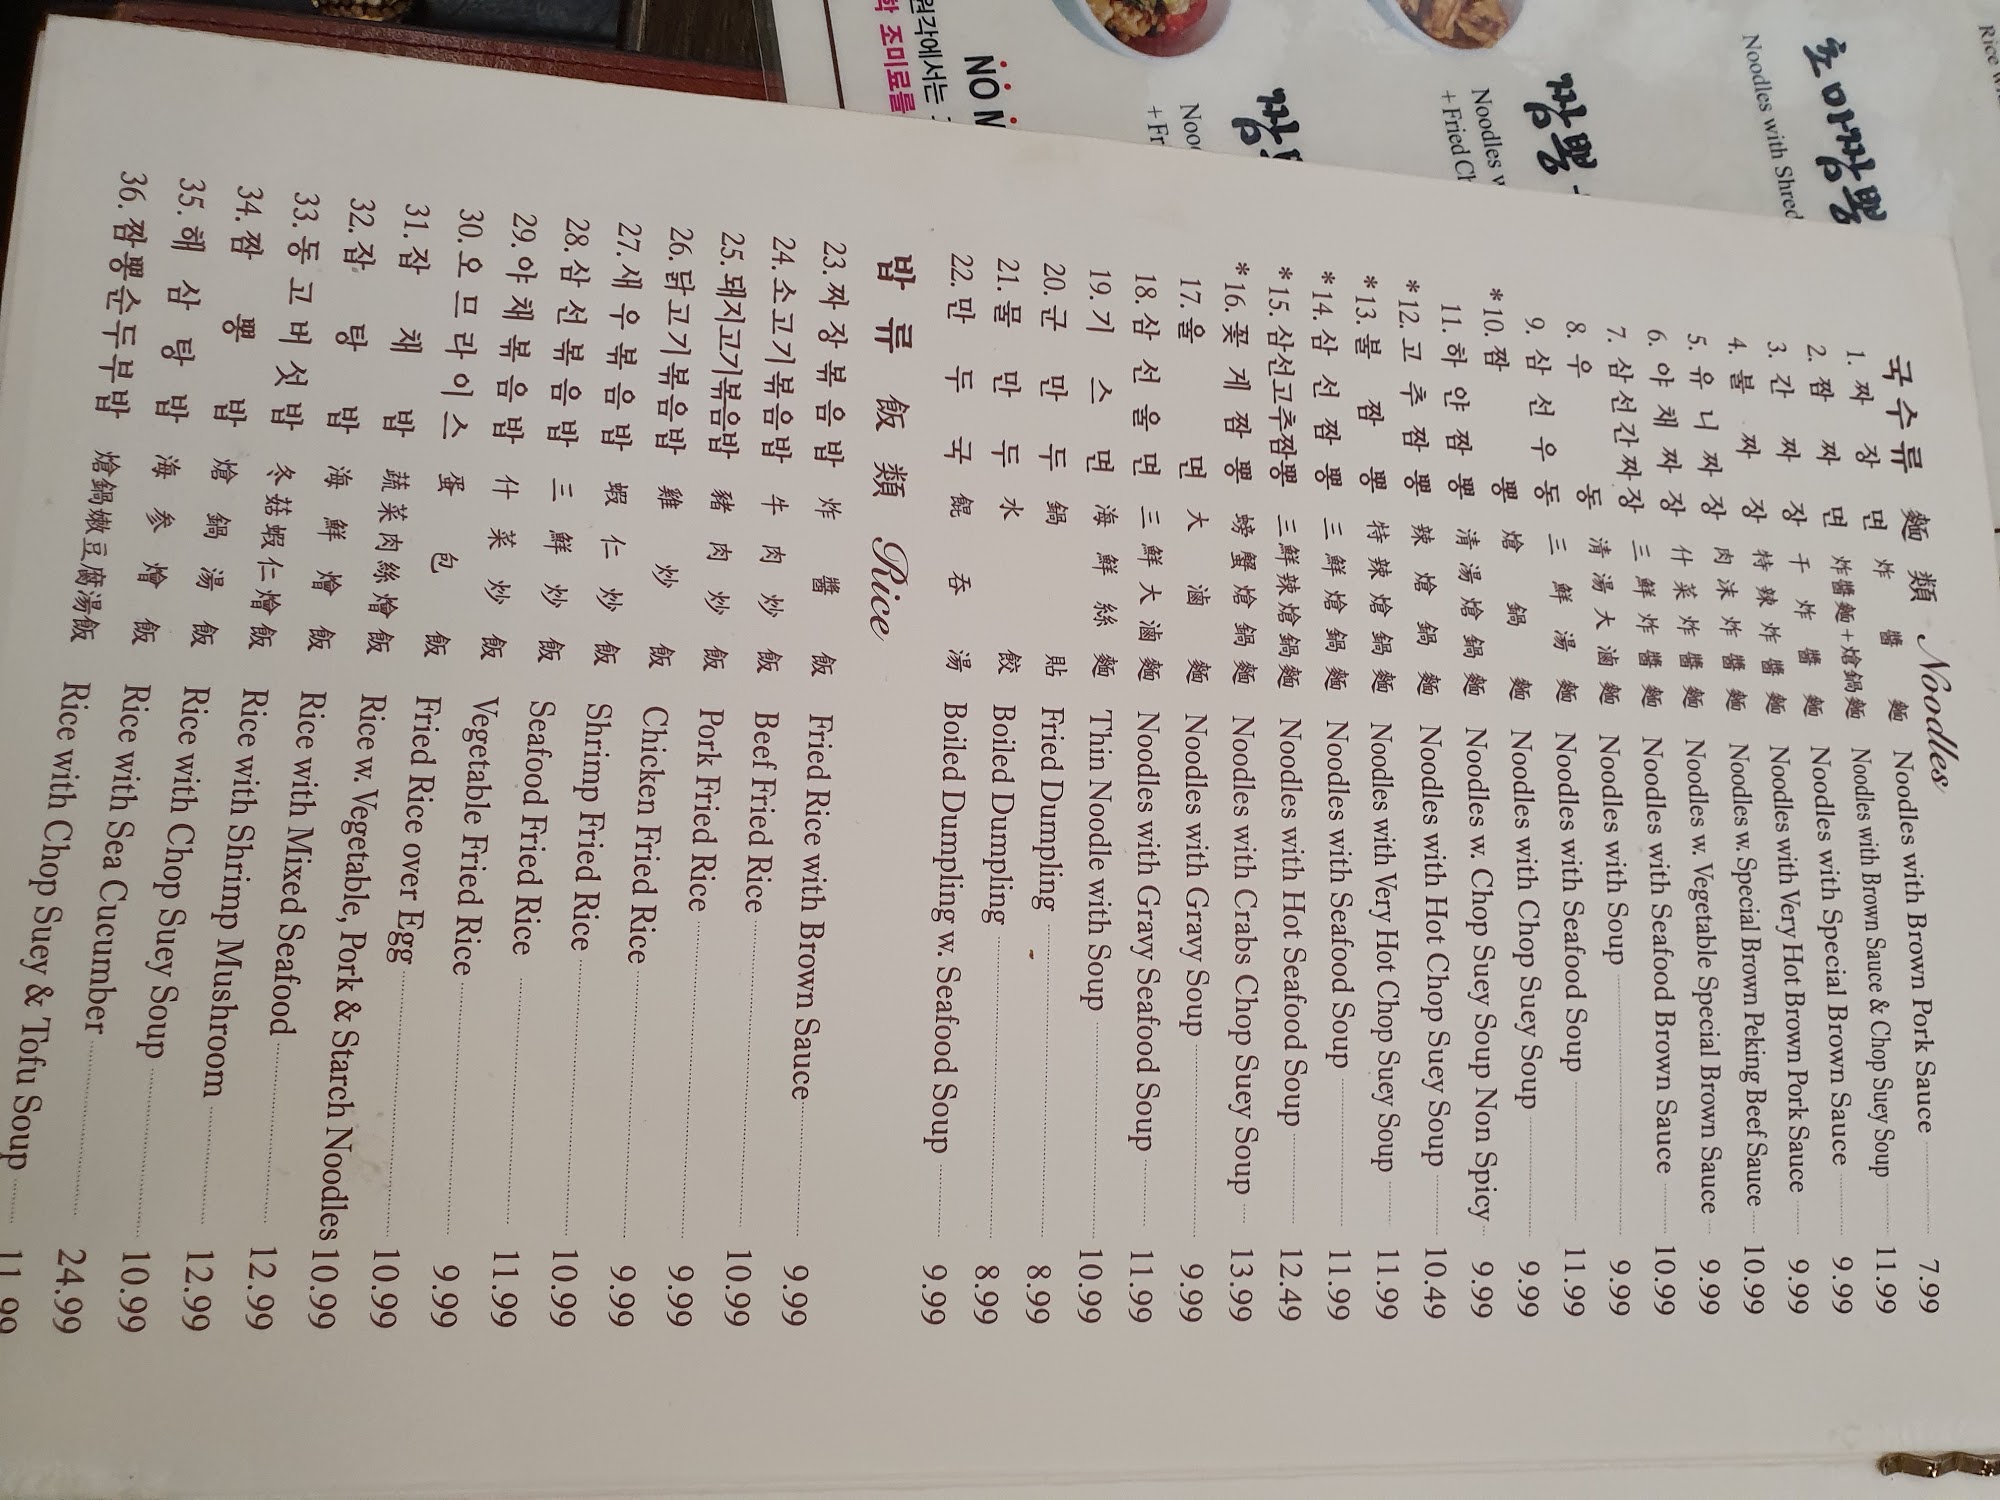 국수류 麵類 Noodles
1. 짜장면 炸醬麵 Noodles with Brown Pork Sauce 7.99
2. 짬짜면 炸醬麵+熗鍋麵 Noodles with Brown Sauce & Chop Suey Soup 11.99
3. 간짜장 干炸醬麵 Noodles with Special Brown Sauce 9.99
4. 불짜장 特辣炸醬麵 Noodles with Very Hot Brown Pork Sauce 9.99
5. 유니짜장 肉沫炸醬麵 Noodles w. Special Brown Peking Beef Sauce 10.99
6. 야채짜장 什菜炸醬麵 Noodles w. Vegetable Special Brown Sauce 9.99
7. 삼선간짜장 三鮮炸醬麵 Noodles with Seafood Brown Sauce 10.99
8. 우동 清湯大滷麵 Noodles with Soup 9.99
9. 삼선우동 三鮮湯麵 Noodles with Seafood Soup 11.99
*10. 짬뽕 熗鍋麵 Noodles with Chop Suey Soup 9.99
11. 하얀짬뽕 清湯熗鍋麵 Noodles w. Chop Suey Soup Non Spicy 9.99
*12. 고추짬뽕 辣熗鍋麵 Noodles with Hot Chop Suey Soup 10.49
*13. 불짬뽕 特辣熗鍋麵 Noodles with Very Hot Chop Suey Soup 11.99
*14. 삼선짬뽕 三鮮熗鍋麵 Noodles with Seafood Soup 11.99
*15. 삼선고추짬뽕 三鮮辣熗鍋麵 Noodles with Hot Seafood Soup 12.49
*16. 꽃게짬뽕 螃蟹熗鍋麵 Noodles with Crabs Chop Suey Soup 13.99
17. 울면 大滷麵 Noodles with Gravy Soup 9.99
18. 삼선울면 三鮮大滷麵 Noodles with Gravy Seafood Soup 11.99
19. 기스면 海鮮絲麵 Thin Noodle with Soup 10.99
20. 군만두 鍋貼 Fried Dumpling 8.99
21. 물만두 水餃 Boiled Dumpling 8.99
22. 만두국 餛吞湯 Boiled Dumpling w. Seafood Soup 9.99
밥류 飯類 Rice
23. 짜장볶음밥 炸醬飯 Fried Rice with Brown Sauce 9.99
24. 소고기볶음밥 牛肉炒飯 Beef Fried Rice 10.99
25. 돼지고기볶음밥 豬肉炒飯 Pork Fried Rice 9.99
26. 닭고기볶음밥 雞炒飯 Chicken Fried Rice 9.99
27. 새우볶음밥 蝦仁炒飯 Shrimp Fried Rice 10.99
28. 삼선볶음밥 三鮮炒飯 Seafood Fried Rice 11.99
29. 야채볶음밥 什菜炒飯 Vegetable Fried Rice 9.99
30. 오므라이스 蛋包飯 Fried Rice over Egg 10.99
31. 잡채밥 蔬菜肉絲燴飯 Rice w. Vegetable, Pork & Starch Noodles 10.99
32. 잡탕밥 海鮮燴飯 Rice with Mixed Seafood 12.99
33. 동고버섯밥 冬菇蝦仁燴飯 Rice with Shrimp Mushroom 12.99
34. 짬뽕밥 熗鍋湯飯 Rice with Chop Suey Soup 10.99
35. 해삼탕밥 海参燴飯 Rice with Sea Cucumber 24.99
36. 짬뽕순두부밥 熗鍋嫩豆腐湯飯 Rice with Chop Suey & Tofu Soup 11.99
초마짬뽕
Noodles with Shred
짬뽕
Noodles w
+ Fried Ch
짬
Noo
+ Fr
NO M
원각에서는
학 조미료를